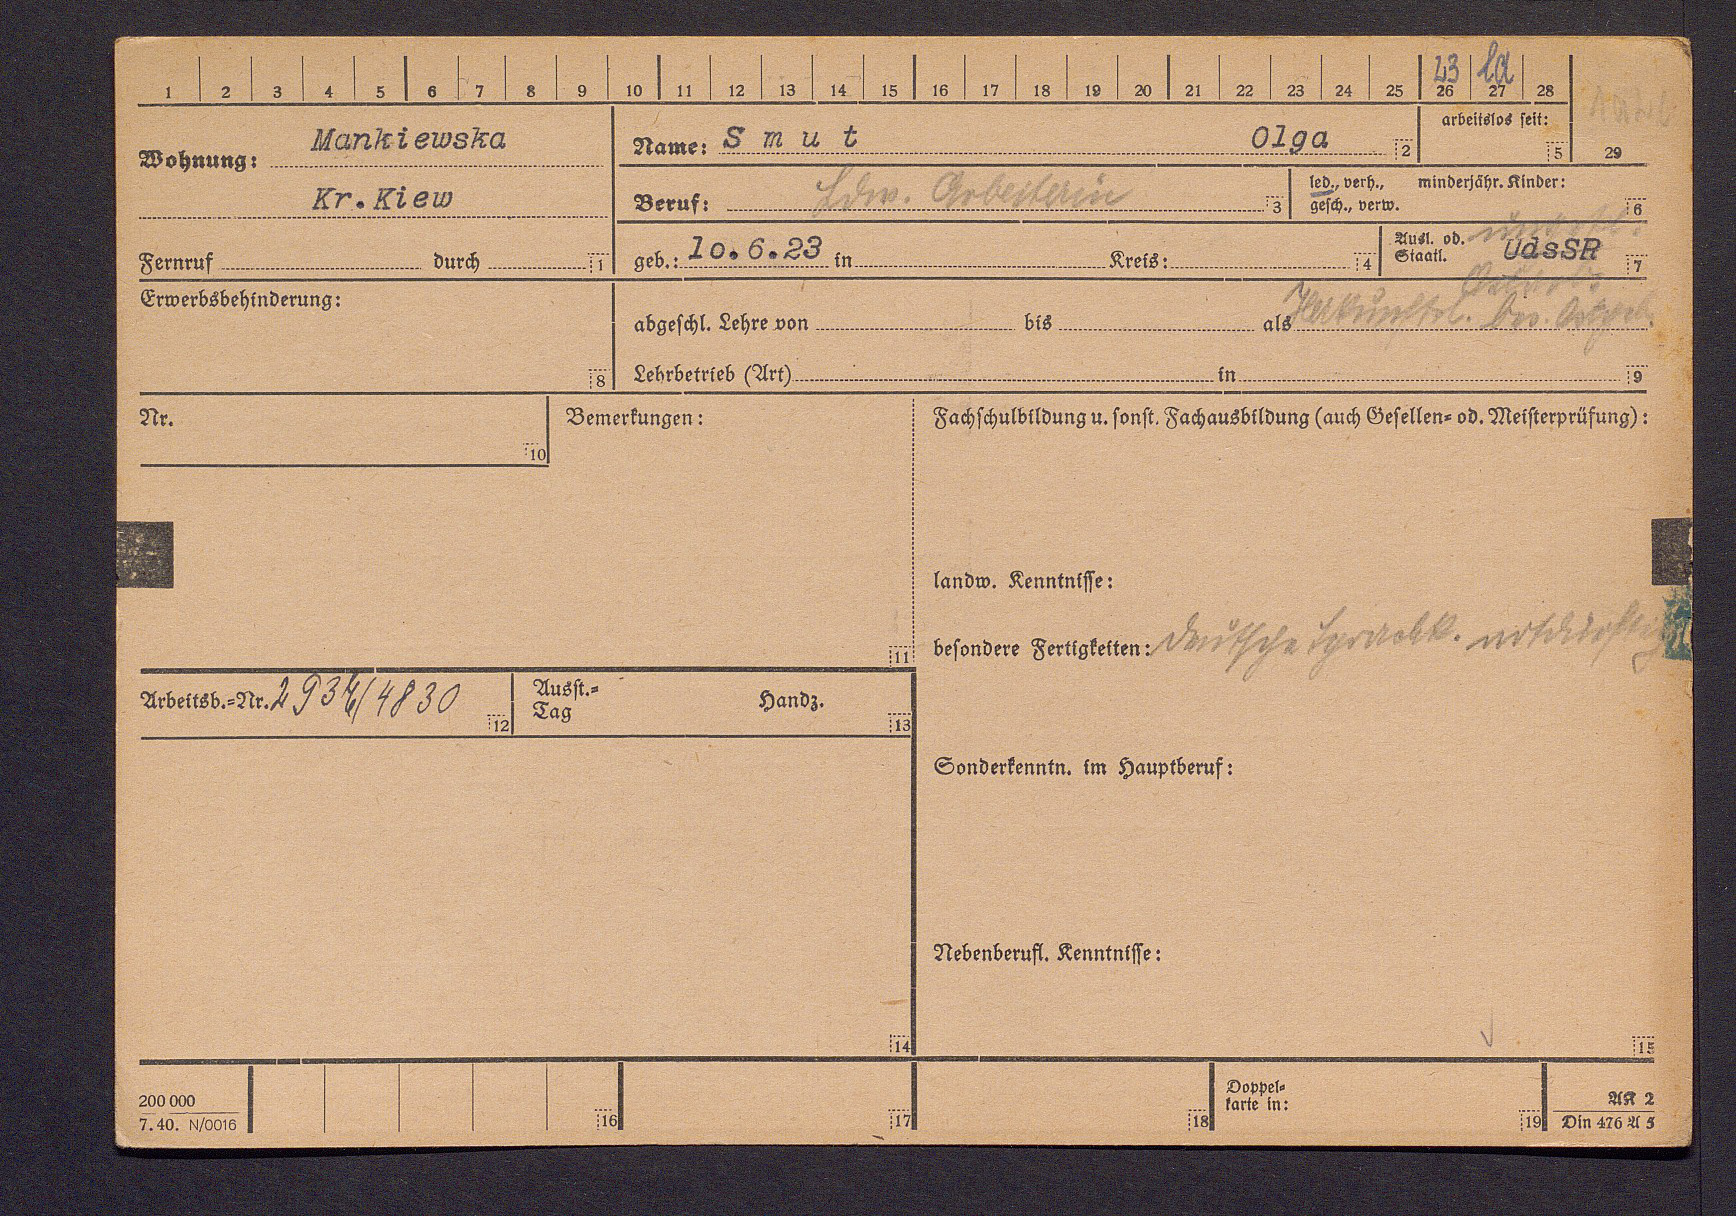 1 2 3 4 5 6 7 8 9 10 11 12 13 14 15 16 17 18 19 20 21 22 23 24 25 26 27 28
23 la
Wohnung: Mankiewska
Kr.Kiew
Fernruf durch 1
Name: S m u t Olga 2
arbeitslos seit: 5
29
Beruf: Ldw. Arbeiterin 3
led., verh., minderjähr. Kinder:
gesch., verw. 6
geb.: 1o.6.23 in Kreis: 4
Ausl. od. UdsSR
Staatl. 7
Erwerbsbehinderung:
8
abgeschl. Lehre von bis als
Lehrbetrieb (Art) in 9
Nr.
10
Bemerkungen:
11
Fachschulbildung u. sonst. Fachausbildung (auch Gesellen= od. Meisterprüfung):
landw. Kenntnisse:
besondere Fertigkeiten: Deutsche Sprachk. notdürftig
Arbeitsb.=Nr. 12
Ausst.= Handz.
Tag 13
Sonderkenntn. im Hauptberuf:
Nebenberufl. Kenntnisse:
14
15
200 000
7.40. N/0016
16 17 18
Doppel=
karte in: 19
AK 2
Din 476 A 5